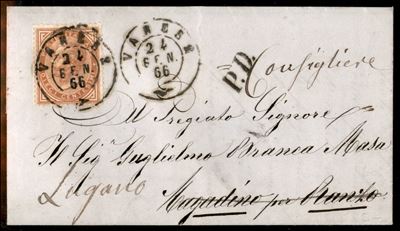 VARESE
24
GEN.
66
VARESE
24
GEN.
66
P.D.
Consigliere
Al Pregiato Signore
Il Sigr Guglielmo Branca Masa
Lugano Magadino per Ranzo